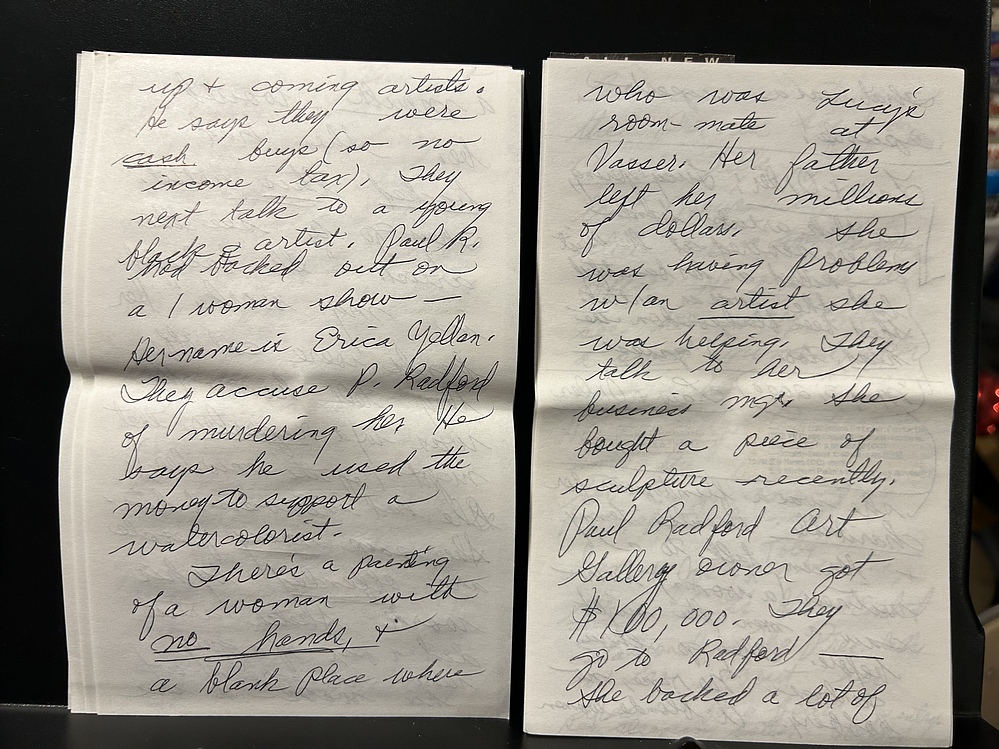 up + coming artists.
He says they were
cash buys (so no
income tax). They
next talk to a young
black artist. Paul R.
had backed out on
a 1 woman show —
Her name is Erica Yellan.
They accuse P. Radford
of murdering her He
says he used the
money to support a
watercolorist.
There's a painting
of a woman with
no hands, +
a blank place where
ALL NEW
who was Lucy's
room-mate at
Vasser. Her father
left her millions
of dollars. She
was having problems
w/an artist she
was helping. They
talk to her
business mgr. She
bought a piece of
sculpture recently.
Paul Radford Art
Gallery owner got
$100,000. They
go to Radford —
She backed a lot of